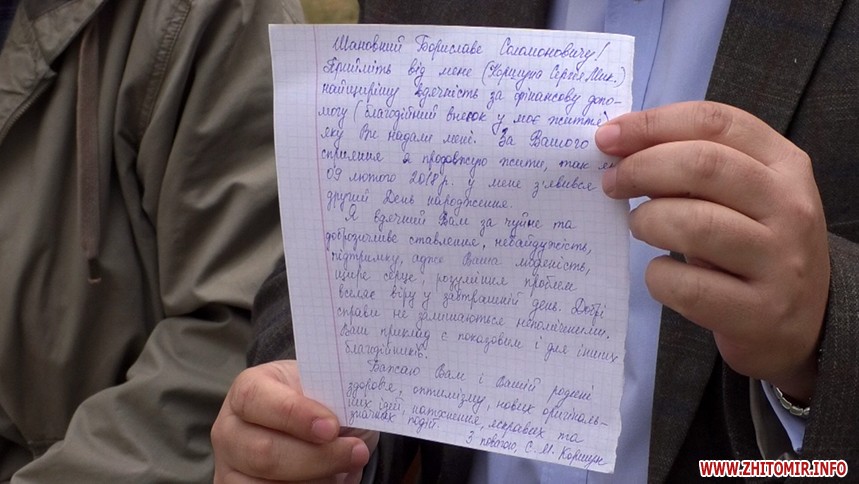 Шановний Бориславе Соломоновичу!
Прийміть від мене (Коршуна Сергія Мик.)
найщирішу вдячність за фінансову допо-
могу (благодійний внесок у моє життя)
яку Ви надали мені. За Вашого
сприяння я продовжую жити, так як
09 лютого 2018 р. у мене з'явився
другий День народження.
Я вдячний Вам за чуйне та
доброзичливе ставлення, небайдужість,
підтримку, адже Ваша людяність,
щире серце, розуміння проблем
вселяє віру у завтрашній день. Добрі
справи не залишаються непоміченими.
Ваш приклад є показовим і для інших
благодійників.
Бажаю Вам і Вашій родині
здоров'я, оптимізму, нових оригіналь-
них ідей, натхнення, яскравих та
значних подій.
З повагою, С. М. Коршун
WWW.ZHITOMIR.INFO